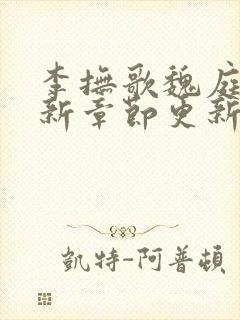 李撫歌魏庭
新章節更新
凱特-阿普頓